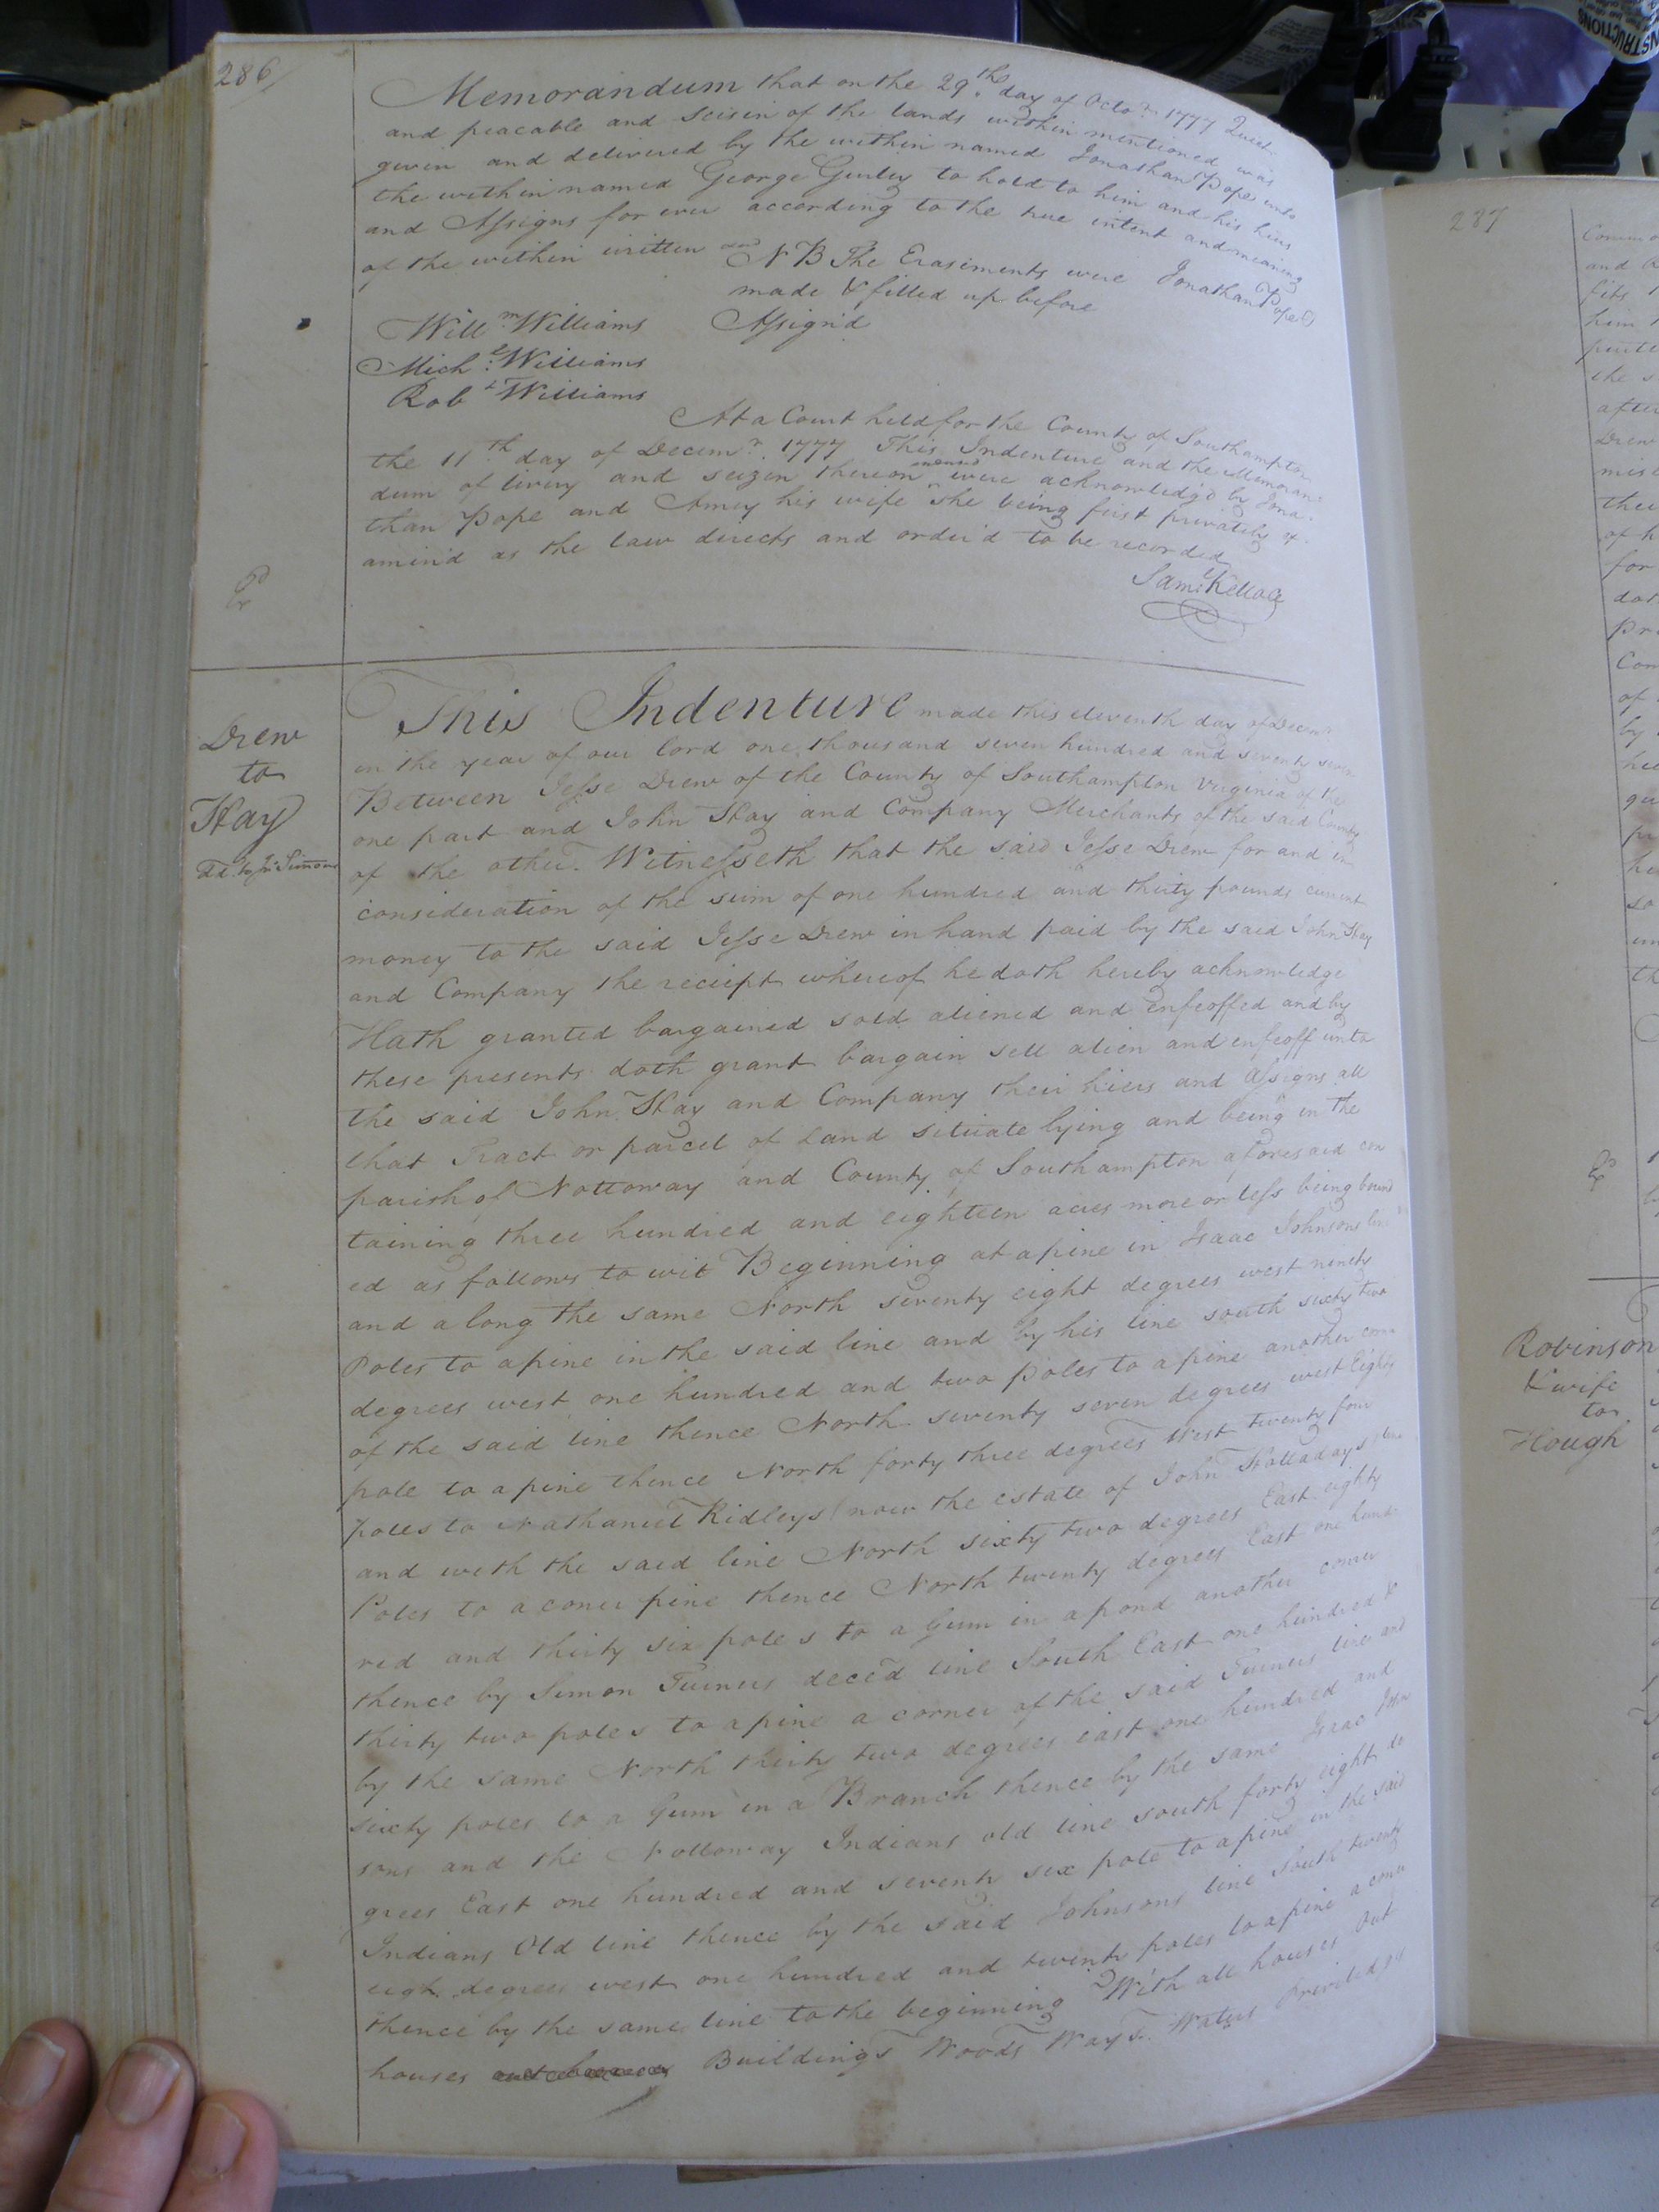 286
Memorandum that on the 29.th day of Octo.r 1777 Quiet
and peacable and Seisin of the lands within mentioned was
given and delivered by the within named Jonathan Pope unto
the within named George Gurley to hold to him and his heirs
and Assigns for ever according to the true intent and meaning
of the within written
NB The Erasiments were Jonathan Pope
made & filled up before
Assign'd
Will.m Williams
Mich.l Williams
Rob.t Williams
At a Court held for the County of Southampton
the 11.th day of Decem.r 1777 This Indenture and the Memoran
dum of livery and seizen thereon were acknowledg'd by Jona-
than Pope and Amey his wife she being first privately ex-
amin'd as the law directs and order'd to be recorded
Sam.l Kello
Drew
to
Hay
This Indenture made this eleventh day of Decem.r
in the year of our lord one thousand seven hundred and seventy seven
Between Jesse Drew of the County of Southampton Virginia of the
one part and John Hay and Company Merchants of the said County
of the other. Witnesseth that the said Jesse Drew for and in
consideration of the sum of one hundred and thirty pounds current
money to the said Jesse Drew in hand paid by the said John Hay
and Company the receipt whereof he doth hereby acknowledge
Hath granted bargained sold aliened and enfeoffed and by
these presents doth grant bargain sell alien and enfeoff unto
the said John Hay and Company their hiers and Assigns all
that Tract or parcel of Land situate lying and being in the
parish of Nottoway and County of Southampton aforesaid con
taining three hundred and eighteen acres more or less being bound
ed as follows to wit Beginning at a pine in Isaac Johnsons line
and along the same North seventy eight degrees west ninety
Poles to a pine in the said line and by his line south sixty two
degrees west one hundred and two poles to a pine another corner
of the said line thence North seventy seven degrees west Eighty
pole to a pine thence North forty three degrees West twenty four
poles to Nathaniel Ridleys (now the estate of John Halladays) line
and with the said line North sixty two degrees East eighty
Poles to a coner pine thence North twenty degrees East one hund
red and thirty six poles to a Gum in a pond another coner
thence by Simon Turners deced line South East one hundred &
thirty two poles to a pine a corner of the said Turners line and
by the same North thirty two degrees east one hundred and
sixty poles to a Gum in a Branch thence by the same Isaac John
sons and the Nottoway Indians old line south forty eight de
grees East one hundred and seventy six pole to a pine in the said
Indians Old line thence by the said Johnsons line South twenty
eigh degrees west one hundred and twenty poles to a pine a coner
thence by the same line to the beginning With all houses Out
houses Buildings Woods Ways Waters Priviledges
287
Robinson
& wife
to
Hough